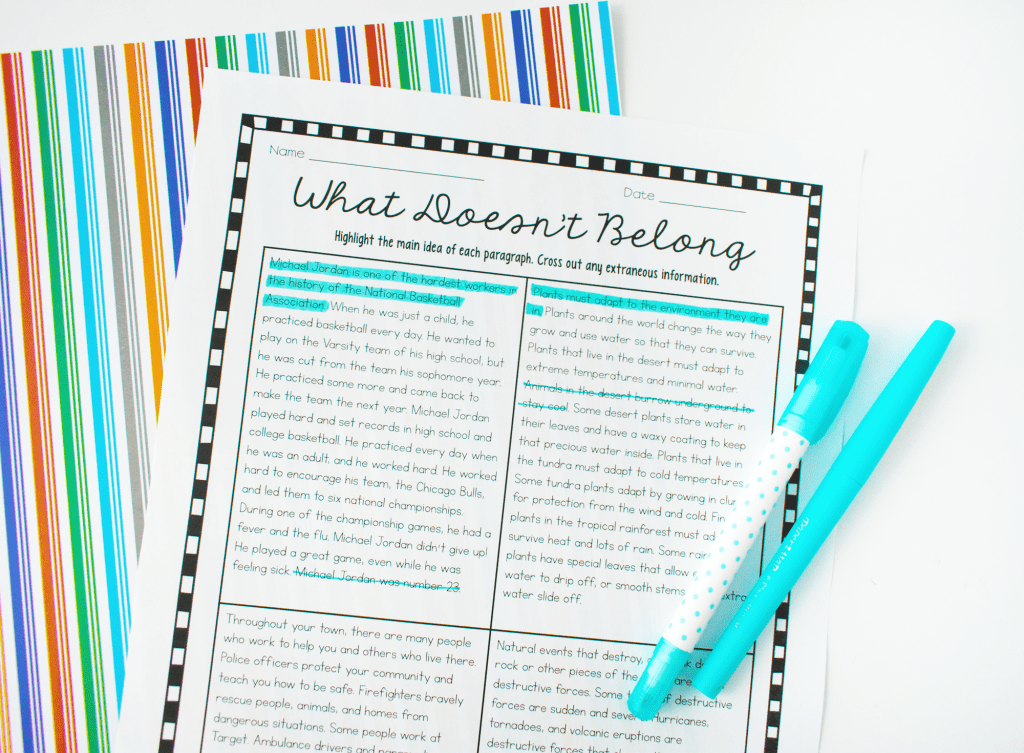 Name
Date
What Doesn't Belong
Highlight the main idea of each paragraph. Cross out any extraneous information.
Michael Jordan is one of the hardest workers in
the history of the National Basketball
Association. When he was just a child, he
practiced basketball every day. He wanted to
play on the Varsity team of his high school, but
he was cut from the team his sophomore year.
He practiced some more and came back to
make the team the next year. Michael Jordan
played hard and set records in high school and
college basketball. He practiced every day when
he was an adult, and he worked hard. He worked
hard to encourage his team, the Chicago Bulls,
and led them to six national championships.
During one of the championship games, he had a
fever and the flu. Michael Jordan didn't give up!
He played a great game, even while he was
feeling sick. Michael Jordan was number 23.
Plants must adapt to the environment they are
in. Plants around the world change the way they
grow and use water so that they can survive.
Plants that live in the desert must adapt to
extreme temperatures and minimal water.
Animals in the desert burrow underground to
stay cool. Some desert plants store water in
their leaves and have a waxy coating to keep
that precious water inside. Plants that live in
the tundra must adapt to cold temperatures.
Some tundra plants adapt by growing in
for protection from the wind and cold.
plants in the tropical rainforest must
survive heat and lots of rain. Some
plants have special leaves that allow extra
water to drip off, or smooth stems
water slide off.
Throughout your town, there are many people
who work to help you and others who live there.
Police officers protect your community and
teach you how to be safe. Firefighters bravely
rescue people, animals, and homes from
dangerous situations. Some people work at
Target. Ambulance drivers and
Natural events that destroy,
rock or other pieces of the are
destructive forces. Some of destructive
forces are sudden and hurricanes,
tornadoes, and volcanic eruptions are
destructive forces that